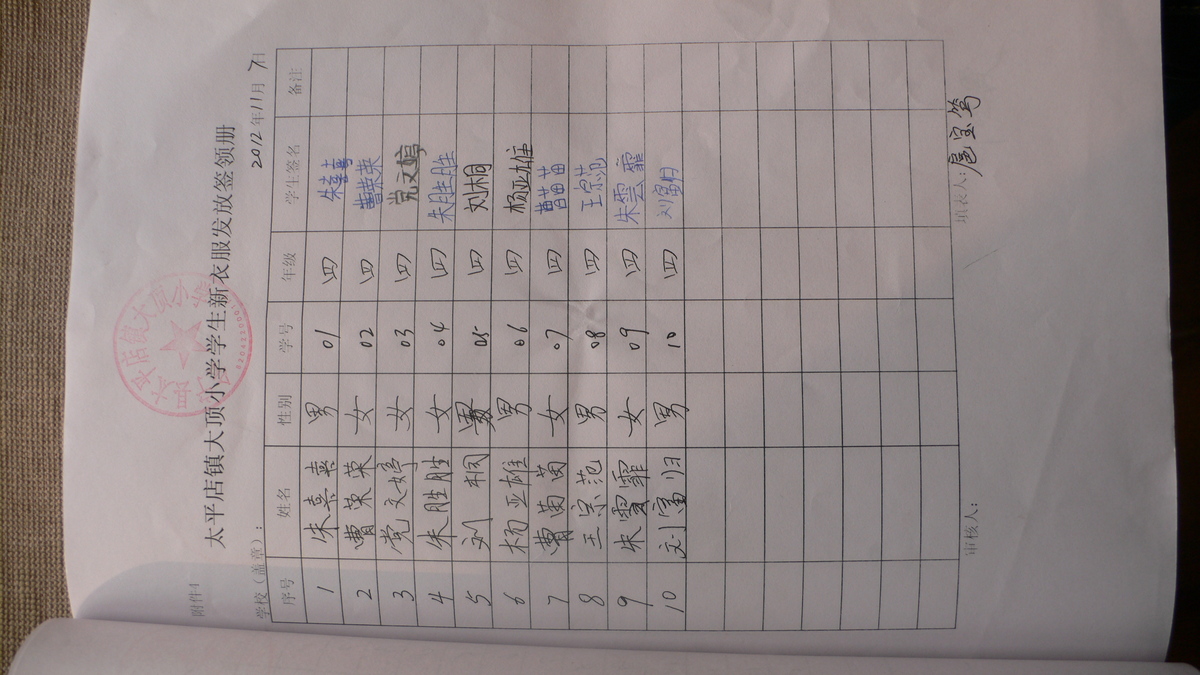 附件4
太平店镇大顶小学学生新衣服发放签领册
学校（盖章）： 2012年11月7日
序号 姓名 性别 学号 年级 学生签名 备注
1 朱喜喜 男 01 四 朱喜喜
2 曹荣荣 女 02 四 曹荣荣
3 党文婷 女 03 四 党文婷
4 朱胜胜 女 04 四 朱胜胜
5 刘桐 05 四 刘桐
6 杨亚雄 男 06 四 杨亚雄
7 曹苗苗 女 07 四 曹苗苗
8 王宗范 男 08 四 王宗范
9 朱雲霏 女 09 四 朱雲霏
10 刘富归 男 10 四 刘富归
审核人： 填表人：
太平店镇大顶小学